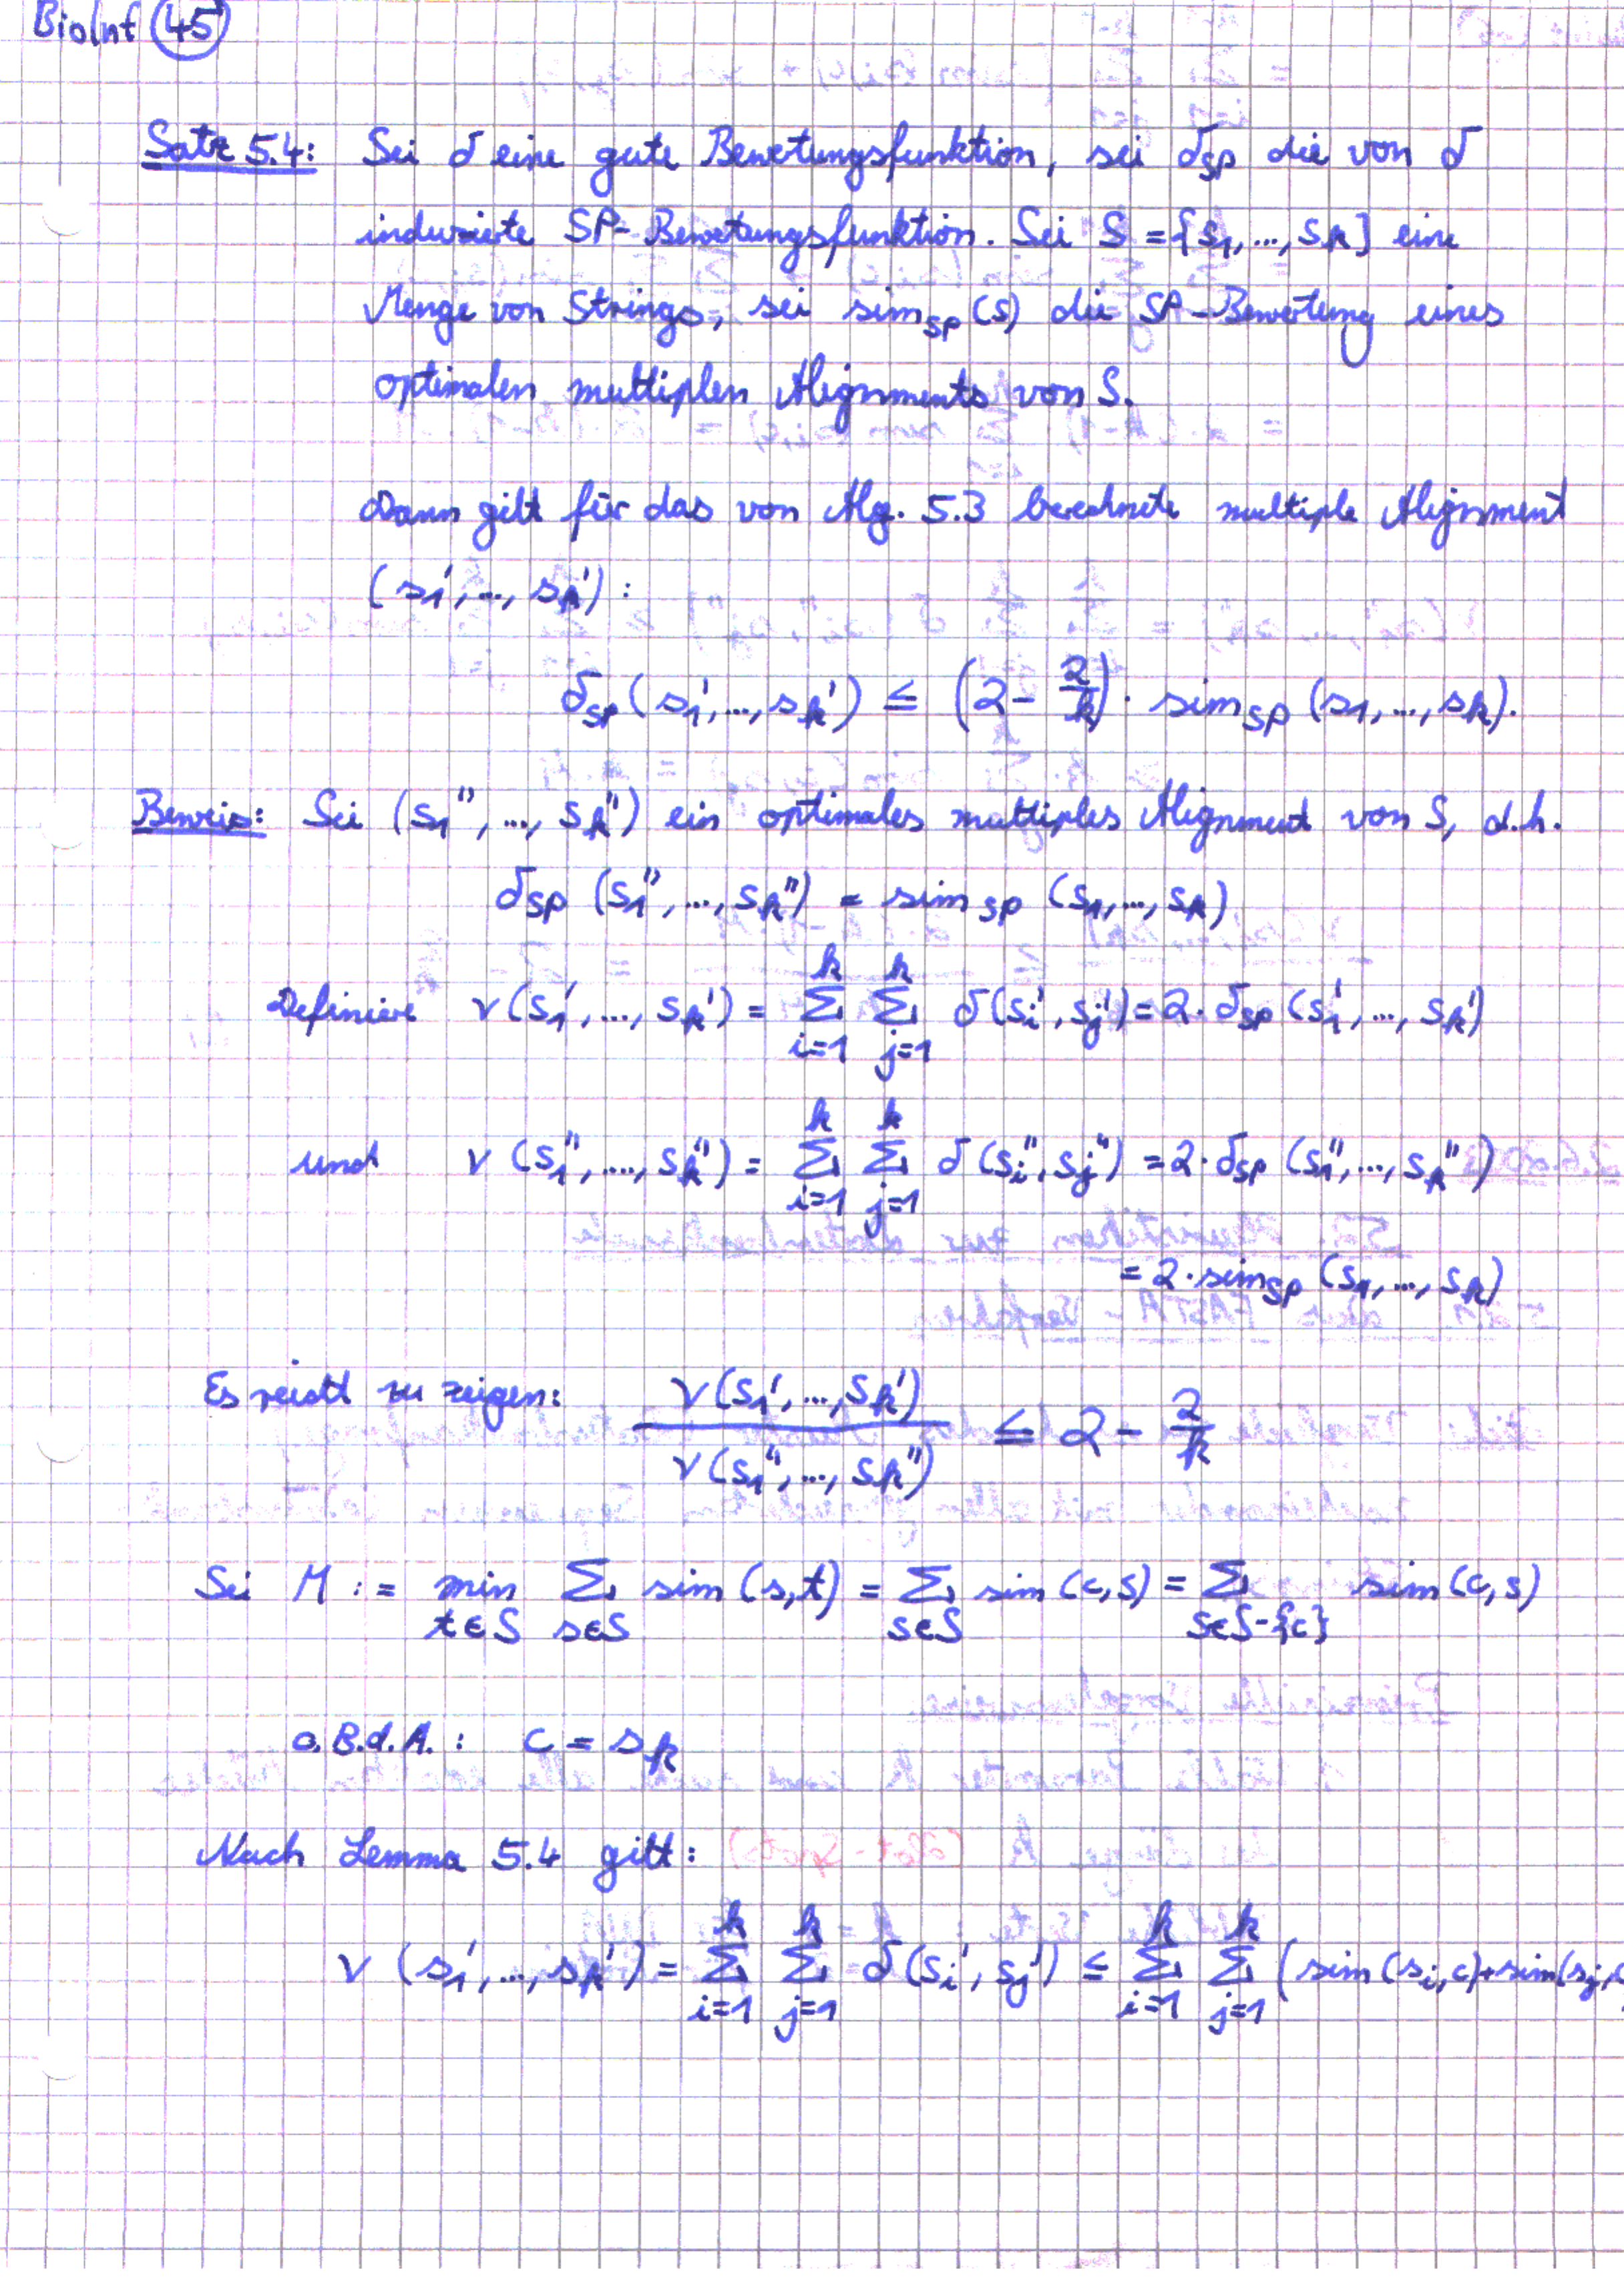 BioInf 45
Satz 5.4: Sei δ eine gute Bewertungsfunktion, sei δ_SP die von δ
induzierte SP-Bewertungsfunktion. Sei S = {s_1, ..., s_k} eine
Menge von Strings, sei sim_SP (S) die SP-Bewertung eines
optimalen multiplen Alignments von S.
Dann gilt für das von Alg. 5.3 berechnete multiple Alignment
(s_1', ..., s_k') :
δ_SP (s_1', ..., s_k') ≤ (2 - 2/k) · sim_SP (s_1, ..., s_k).
Beweis: Sei (s_1'', ..., s_k'') ein optimales multiples Alignment von S, d.h.
δ_SP (s_1'', ..., s_k'') = sim_SP (s_1, ..., s_k)
Definiere v(s_1', ..., s_k') = Σ_{i=1}^k Σ_{j=1}^k δ(s_i', s_j') = 2 · δ_SP (s_1', ..., s_k')
und v (s_1'', ...., s_k'') = Σ_{i=1}^k Σ_{j=1}^k δ(s_i'', s_j'') = 2 · δ_SP (s_1'', ..., s_k'')
= 2 · sim_SP (s_1, ..., s_k)
Es reicht zu zeigen: v(s_1', ..., s_k') / v(s_1'', ..., s_k'') ≤ 2 - 2/k
Sei M := min_{t∈S} Σ_{s∈S} sim (s,t) = Σ_{s∈S} sim (c,s) = Σ_{s∈S-{c}} sim (c,s)
o.B.d.A. : c = s_k
Nach Lemma 5.4 gilt:
v (s_1', ..., s_k') = Σ_{i=1}^k Σ_{j=1}^k δ(s_i', s_j') ≤ Σ_{i=1}^k Σ_{j=1}^k (sim (s_i, c) + sim(s_j,